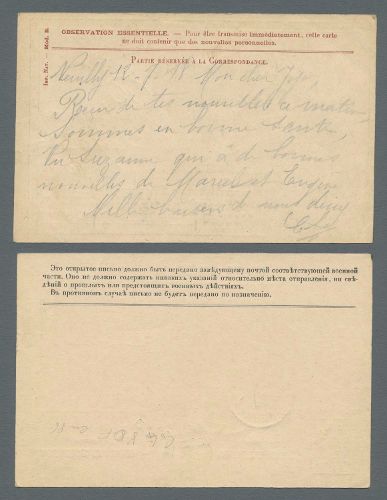 OBSERVATION ESSENTIELLE. — Pour être transmise immédiatement, cette carte
ne doit contenir que des nouvelles personnelles.
PARTIE RÉSERVÉE A LA CORRESPONDANCE.
Neuilly 12 Mon cher
Reçu de tes nouvelles ce matin
Sommes en bonne santé,
Vu Suzanne qui a de bonnes
nouvelles de Marcel et Eugène
Mille baisers de nous deux
Это открытое письмо должно быть передано завѣдующему почтой соотвѣтствующей военной
части. Оно не должно содержать никакихъ указаній относительно мѣста отправленія, ни свѣ-
дѣній о прошлыхъ или предстоящихъ военныхъ дѣйствіяхъ.
Въ противномъ случаѣ письмо не будетъ передано по назначенію.